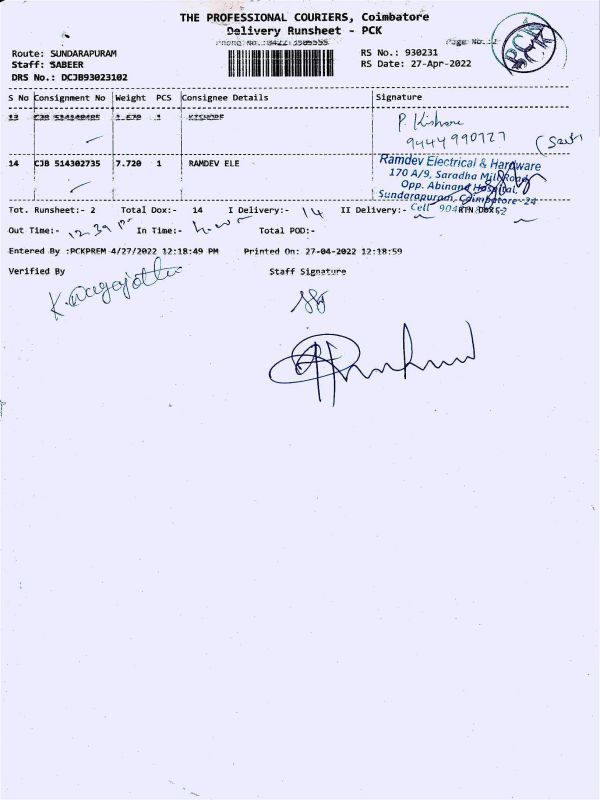 THE PROFESSIONAL COURIERS, Coimbatore
Delivery Runsheet - PCK
Phone No.:0422: Page No.:2
PCK
Route: SUNDARAPURAM RS No.: 930231
Staff: SABEER RS Date: 27-Apr-2022
DRS No.: DCJB93023102
S No Consignment No Weight PCS Consignee Details Signature
13 CJB 1 KISHORE P. Kishore
9444990727
14 CJB 514302735 7.720 1 RAMDEV ELE Ramdev Electrical & Hardware
170 A/9, Saradha Mill Road,
Opp. Abinand Hospital,
Sundarapuram, Coimbatore-24
Tot. Runsheet:- 2 Total Dox:- 14 I Delivery:- 14 II Delivery:- Cell
Out Time:- 12.39 In Time:- Total POD:-
Entered By :PCKPREM 4/27/2022 12:18:49 PM Printed On: 27-04-2022 12:18:59
Verified By Staff Signature